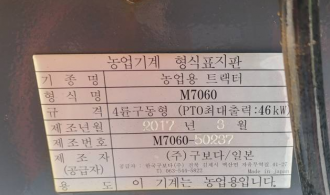 농업기계 형식표지판
기종명 농업용 트랙터
형식명 M7060
규격 4륜구동형 (PTO최대출력:46kW)
제조년월 2017 년 3 월
제조번호 M7060-50237
제조자 (주)구보다/일본
(공급자)
Made in Japan
용도 이 기계는 농업용입니다.